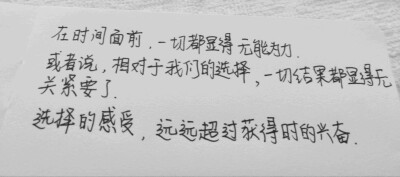 在时间面前，一切都显得无能为力.
或者说，相对于我们的选择，一切结果都显得无
关紧要了.
选择的感受，远远超过获得时的兴奋.